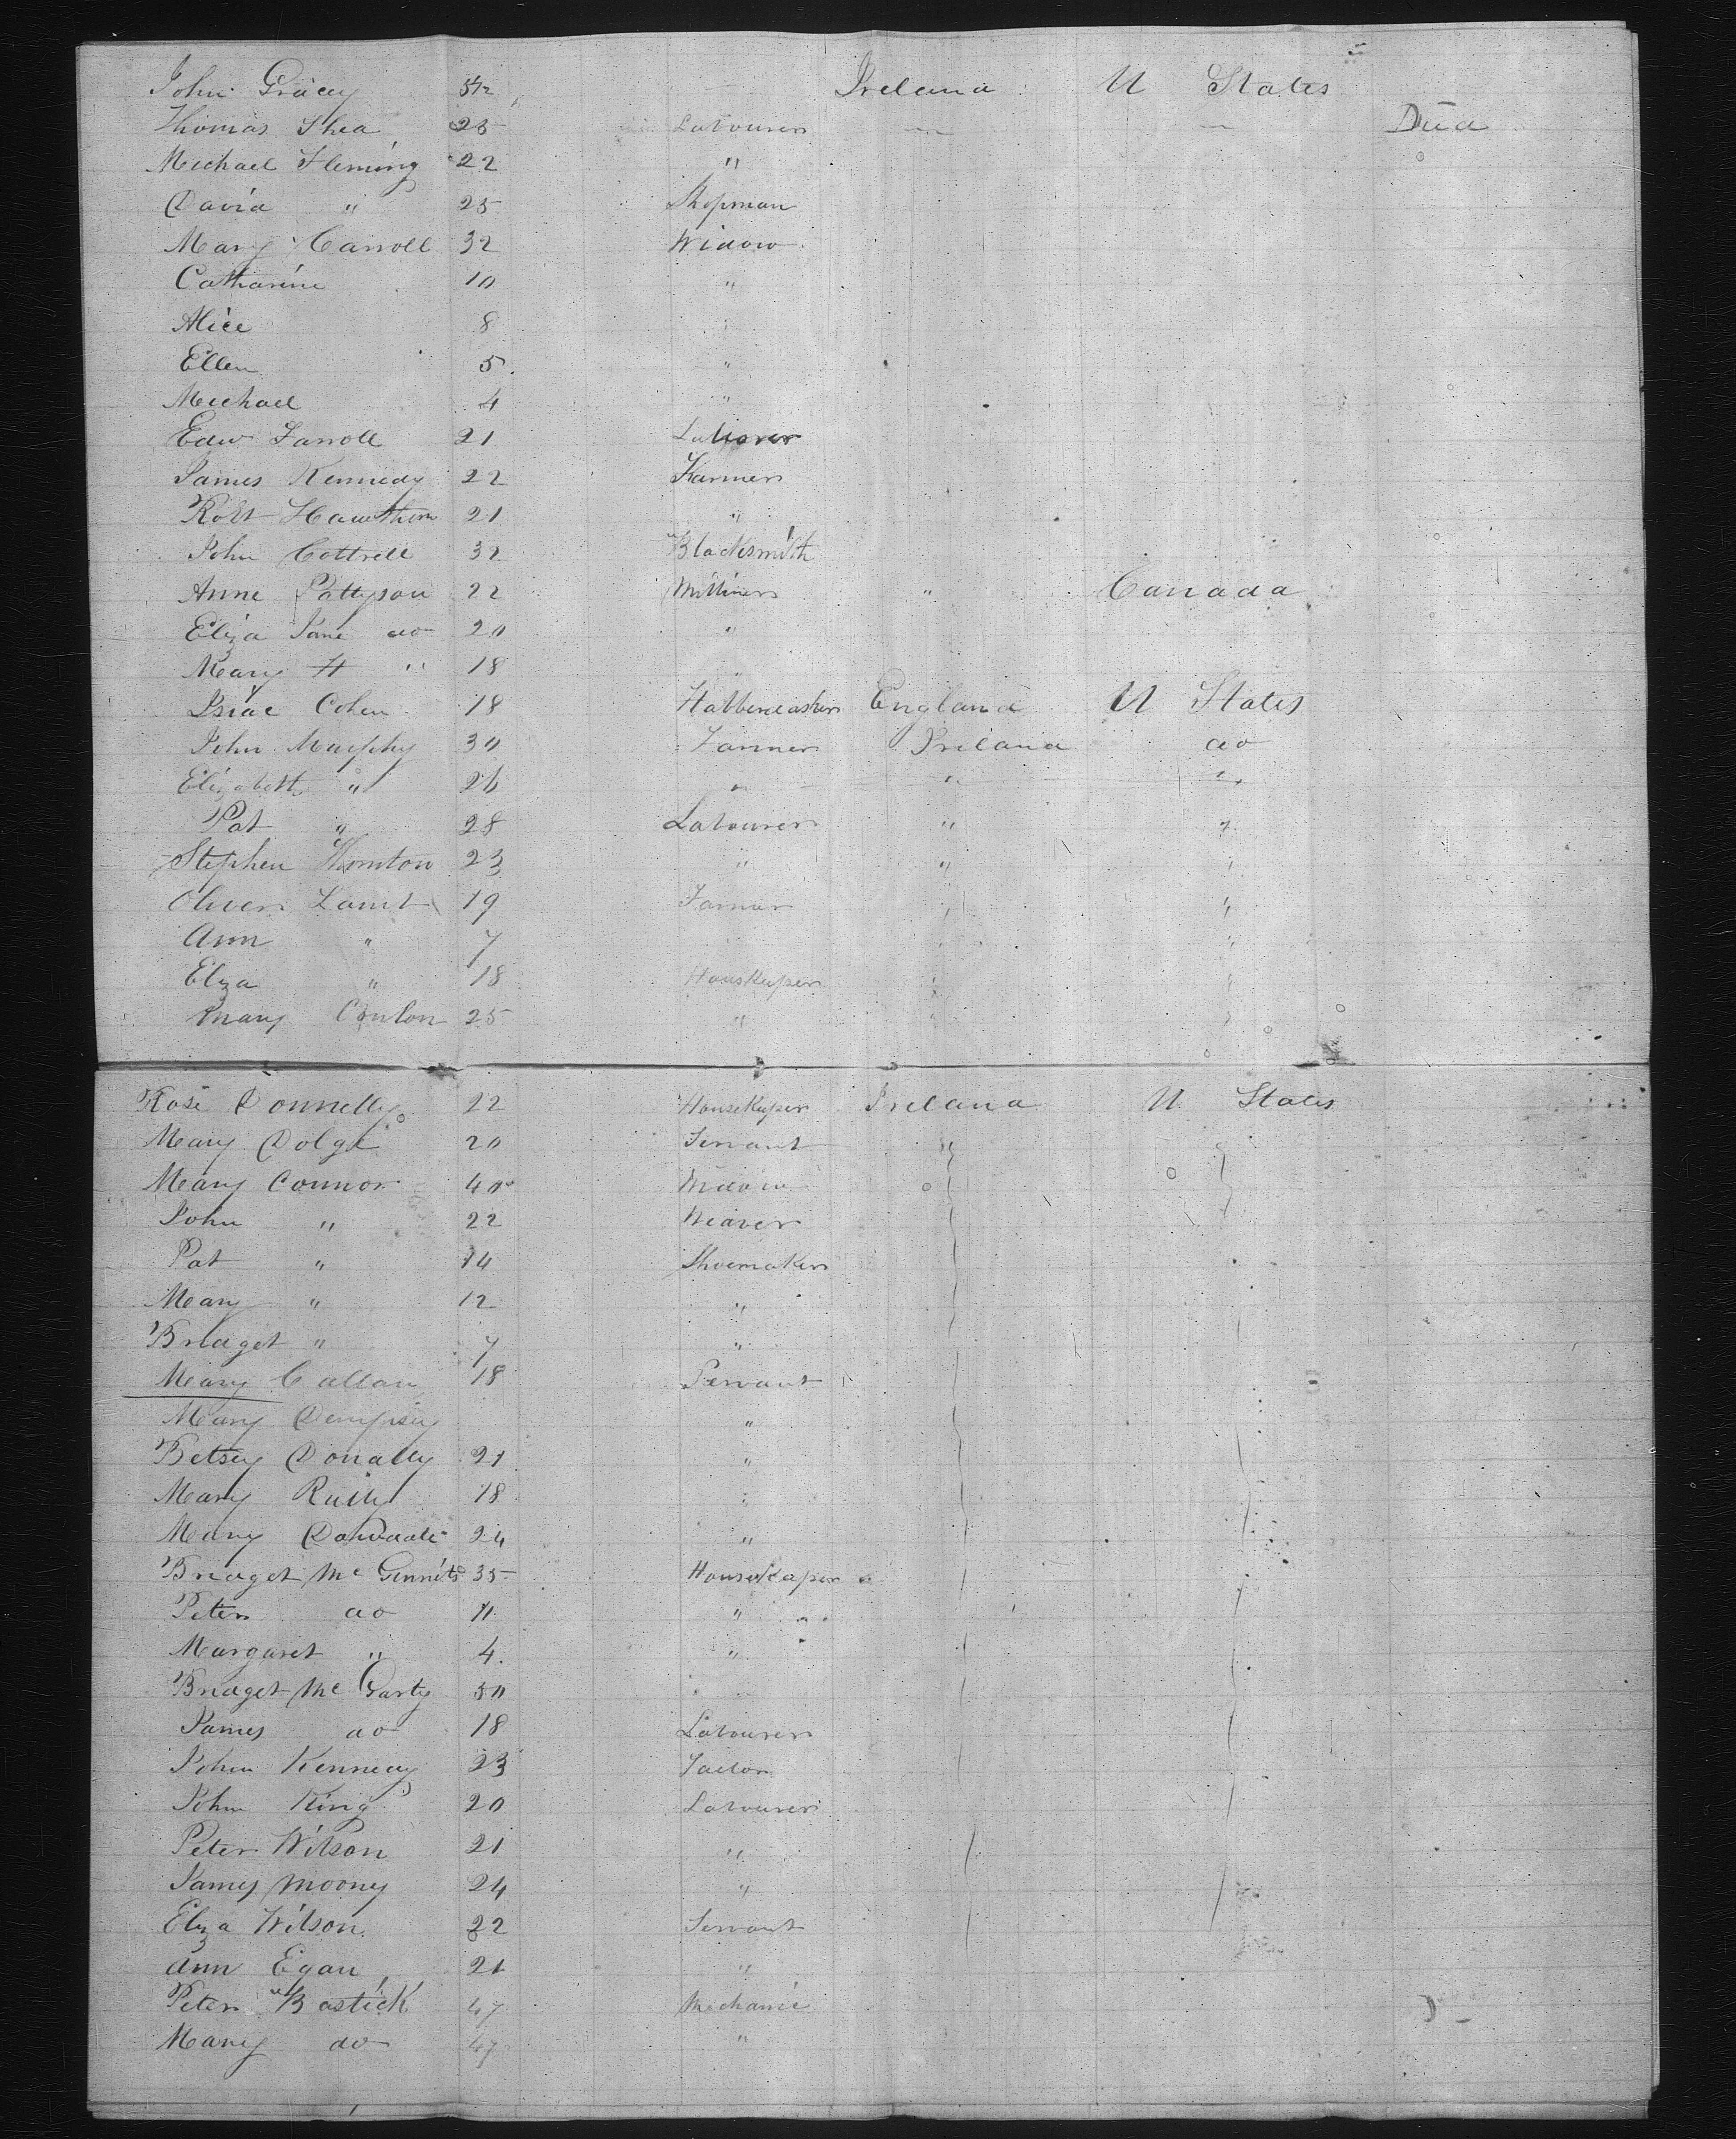 John Gracey 52 Ireland U States
Thomas Shea 25 Labourer — — Died
Michael Fleming 22 "
David " 25 Shopman
Mary Carroll 32 Widow
Catharine 10 "
Alice 8 "
Ellen 5 "
Michael 4 "
Edw Farroll 21 Labourer
James Kennedy 22 Farmer
Robt Hawthorn 21 "
John Cottrell 32 Blacksmith
Anne Pattyson 22 Milliner " Canada
Eliza Jane do 20 "
Mary H " 18 "
Isiac Cohen 18 Habberdasher England U States
John Murphy 30 Tanner Ireland do
Elizabeth " 26 " " "
Pat " 28 Labourer " "
Stephen Thornton 23 " " "
Oliver Lamb 19 Farmer " "
Ann " 7 " "
Eliza " 18 Houskeeper " "
Mary Conlon 25 " " "
Rose Donnelly 22 Housekeeper Ireland U States
Mary Dolge 20 Servant "
Mary Connor 40 Widow
John " 22 Weaver
Pat " 14 Shoemaker
Mary " 12 "
Bridget " 7 "
Mary Callan 18 Servant
Mary Dempsey "
Betsey Donally 21 "
Mary Reilly 18 "
Mary 24 "
Bridget Mc Ginnits 35 Housekeaper
Peter do 11 "
Margaret " 4 "
Bridget Mc Garty 50
James do 18 Labourer
John Kennedy 23 Tailor
John King 20 Labourer
Peter Wilson 21 "
James Mooney 24 "
Eliza Wilson 22 Servant
Ann Egan 21 "
Peter Bostick 47 Mechanic
Mary do 47 "